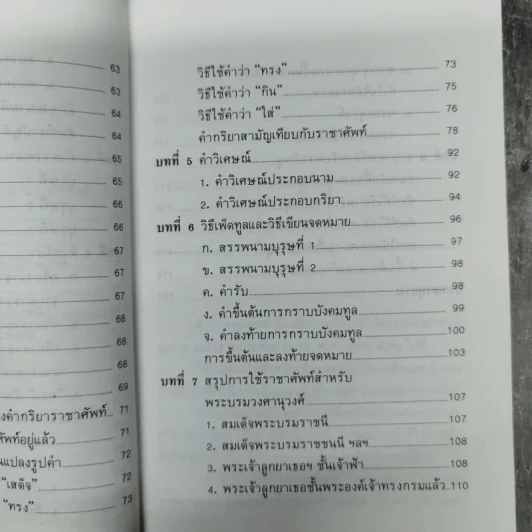 63
63
64
64
65
65
66
66
67
67
67
68
68
68
69
งคำกริยาราชาศัพท์ 71
ศัพท์อยู่แล้ว 71
นแปลงรูปคำ 72
"เสด็จ" 72
"ทรง" 73
วิธีใช้คำว่า "ทรง" 73
วิธีใช้คำว่า "กิน" 75
วิธีใช้คำว่า "ใส่" 76
คำกริยาสามัญเทียบกับราชาศัพท์ 78
บทที่ 5 คำวิเศษณ์ 92
1. คำวิเศษณ์ประกอบนาม 92
2. คำวิเศษณ์ประกอบกริยา 94
บทที่ 6 วิธีเพ็ดทูลและวิธีเขียนจดหมาย 96
ก. สรรพนามบุรุษที่ 1 97
ข. สรรพนามบุรุษที่ 2 98
ค. คำรับ 98
ง. คำขึ้นต้นการกราบบังคมทูล 99
จ. คำลงท้ายการกราบบังคมทูล 100
การขึ้นต้นและลงท้ายจดหมาย 103
บทที่ 7 สรุปการใช้ราชาศัพท์สำหรับ
พระบรมวงศานุวงศ์ 107
1. สมเด็จพระบรมราชินี 107
2. สมเด็จพระบรมราชชนนี ฯลฯ 108
3. พระเจ้าลูกยาเธอฯ ชั้นเจ้าฟ้า 108
4. พระเจ้าลูกยาเธอชั้นพระองค์เจ้าทรงกรมแล้ว 110